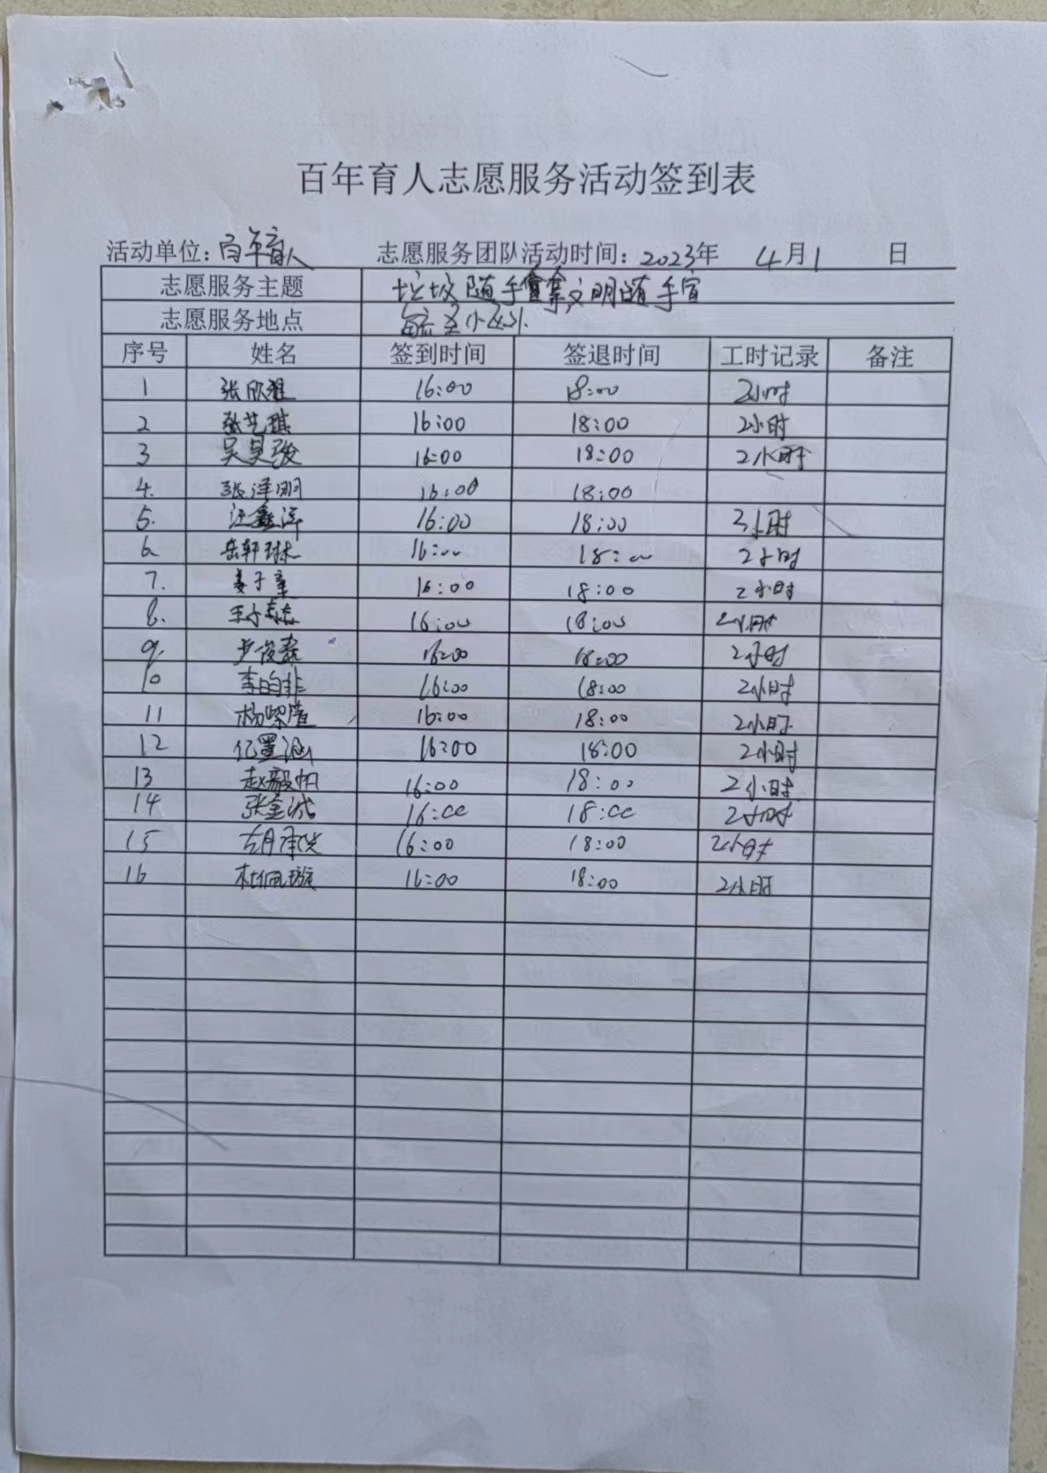 百年育人志愿服务活动签到表
活动单位：百年育人 志愿服务团队活动时间：2023年 4月1 日
志愿服务主题 垃圾随手 文明随手
志愿服务地点
序号 姓名 签到时间 签退时间 工时记录 备注
1 张欣 16:00 18:00 2小时
2 张艺琪 16:00 18:00 2小时
3 吴昊骏 16:00 18:00 2小时
4. 张泽明 16:00 18:00
5. 汪鑫泽 16:00 18:00 2小时
6 岳轩琳 16:00 18:00 2小时
7. 姜子童 16:00 18:00 2小时
8. 王子 16:00 18:00 2小时
9. 尹俊 16:00 18:00 2小时
10 李昀非 16:00 18:00 2小时
11 杨 16:00 18:00 2小时
12 16:00 18:00 2小时
13 赵毅 16:00 18:00 2小时
14 张金诚 16:00 18:00 2小时
15 胡 16:00 18:00 2小时
16 杜佩璇 16:00 18:00 2小时